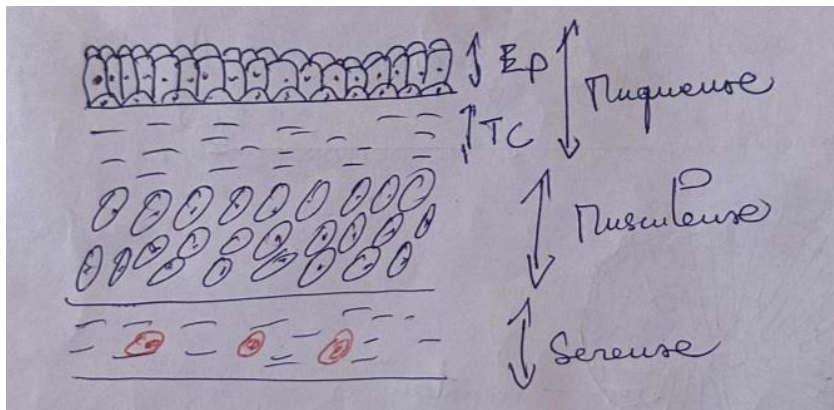 Ep
Muqueuse
TC
Musculeuse
Sereuse